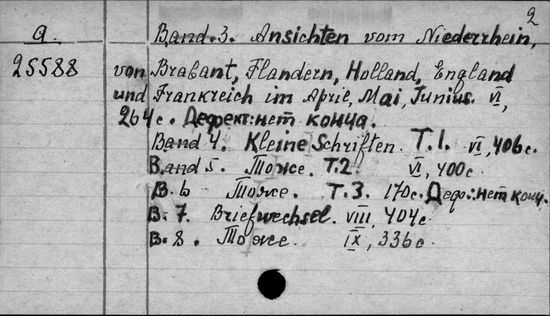 2
a. Band. 3. Ansichten vom Niederrhein,
25588 von Brabant, Flandern, Holland, England
und Frankreich im April, Mai, Junius. VI,
264 с. Дефект: нет конца.
Band 4. Kleine Schriften. T. 1. VI, 406 с.
Band 5. Тоже. T. 2. VI, 400 с
B. 6 Тоже. T. 3. 170 с. Деф.: нет конц.
B. 7. Briefwechsel. VIII, 404 с
B. 8. Тоже. IX, 336 с